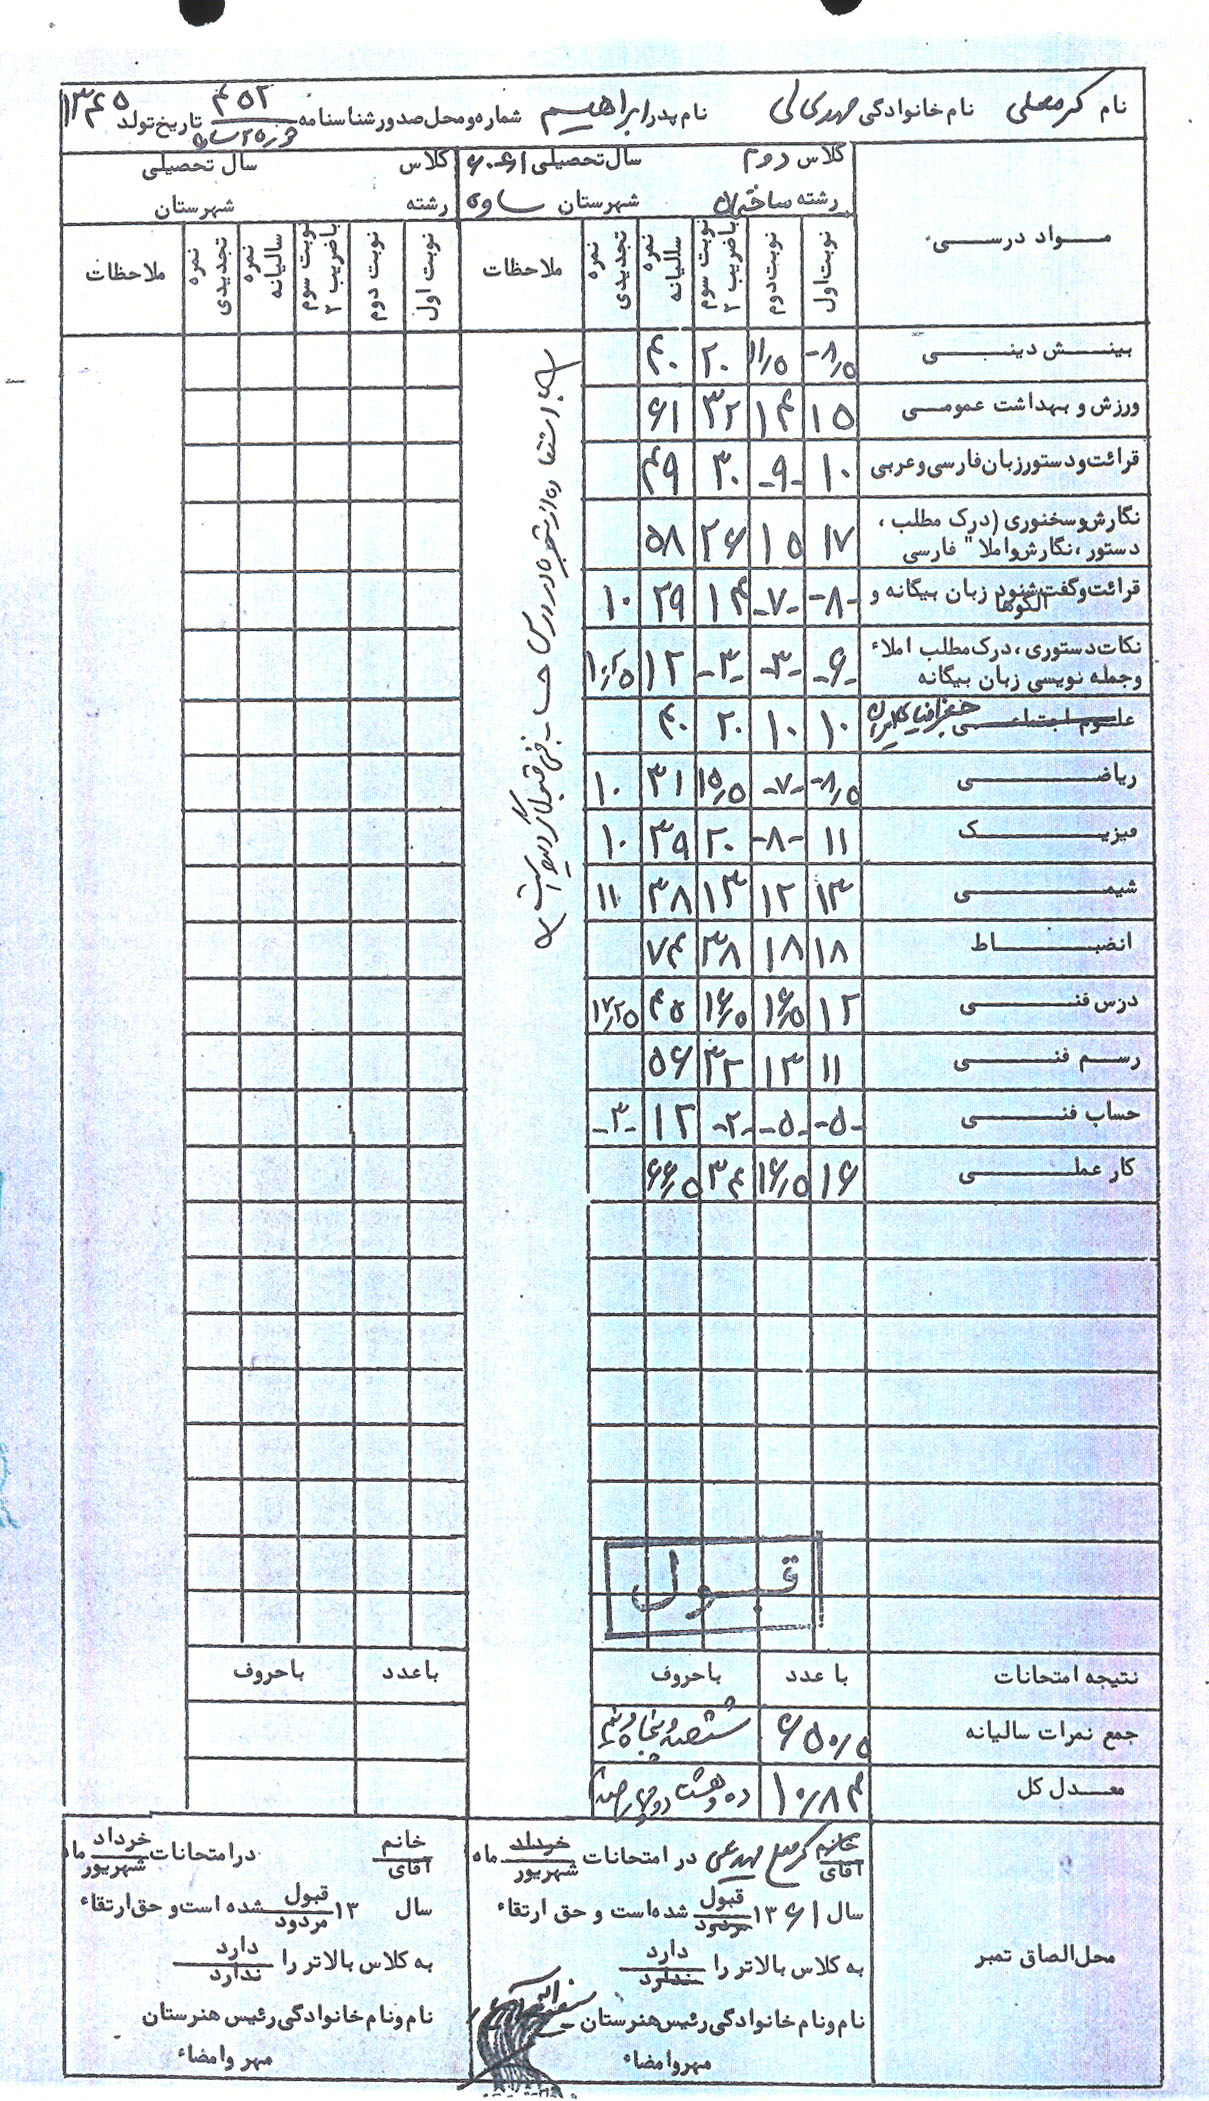 نام کرمعلی نام خانوادگی مهدی‌ئی نام پدر ابراهیم شماره و محل صدور شناسنامه ۴۵۲ تاریخ تولد ۱۳۴۵
مواد درسی
کلاس دوم سال تحصیلی ۶۱-۶۰
رشته ساختمان شهرستان ساوه
کلاس سال تحصیلی
رشته شهرستان
نوبت اول نوبت دوم نوبت سوم با ضریب ۲ نمره سالیانه نمره تجدیدی ملاحظات
نوبت اول نوبت دوم نوبت سوم با ضریب ۲ نمره سالیانه نمره تجدیدی ملاحظات
بینش دینی -۸٫۵ ۱۱٫۵ ۲۰ ۴۰
ورزش و بهداشت عمومی ۱۵ ۱۴ ۳۲ ۶۱
قرائت و دستور زبان فارسی و عربی ۱۰ -۹- ۳۰ ۴۹
نگارش و سخنوری (درک مطلب ،
دستور ، نگارش و املا" فارسی ۱۷ ۱۵ ۲۶ ۵۸
قرائت و گفت شنود زبان بیگانه و
الگوها -۸- -۷- ۱۴ ۲۹ ۱۰
نکات دستوری ، درک مطلب املاء
و جمله نویسی زبان بیگانه -۶- -۳- -۳- ۱۲ ۱۰٫۲۵
علوم اجتماعی جغرافیای ایران ۱۰ ۱۰ ۲۰ ۴۰
ریاضی -۸٫۵ -۷- ۱۵٫۵ ۳۱ ۱۰
فیزیک ۱۱ -۸- ۲۰ ۳۹ ۱۰
شیمی ۱۳ ۱۲ ۱۳ ۳۸ ۱۱
انضباط ۱۸ ۱۸ ۳۸ ۷۴
درس فنی ۱۲ ۱۶٫۵ ۱۶٫۵ ۴۵ ۱۷٫۲۵
رسم فنی ۱۱ ۱۳ ۳۲ ۵۶
حساب فنی -۵- -۵- -۲- ۱۲ -۳-
کار عملی ۱۶ ۱۶٫۵ ۳۴ ۶۶٫۵
با استفاده از تبصره در درس حساب فنی قبول گردیده است
قبول
نتیجه امتحانات با عدد با حروف با عدد با حروف
جمع نمرات سالیانه ۶۵۰٫۵ ششصد و پنجاه و نیم
معدل کل ۱۰٫۸۴ ده و هشتاد و چهار صدم
محل الصاق تمبر
خانم
آقای کرمعلی مهدی‌ئی در امتحانات خرداد
شهریور ماه
سال ۱۳۶۱ قبول
مردود شده است و حق ارتقاء
به کلاس بالاتر را دارد
ندارد
نام و نام خانوادگی رئیس هنرستان
مهر و امضاء
خانم
آقای در امتحانات خرداد
شهریور ماه
سال ۱۳ قبول
مردود شده است و حق ارتقاء
به کلاس بالاتر را دارد
ندارد
نام و نام خانوادگی رئیس هنرستان
مهر و امضاء